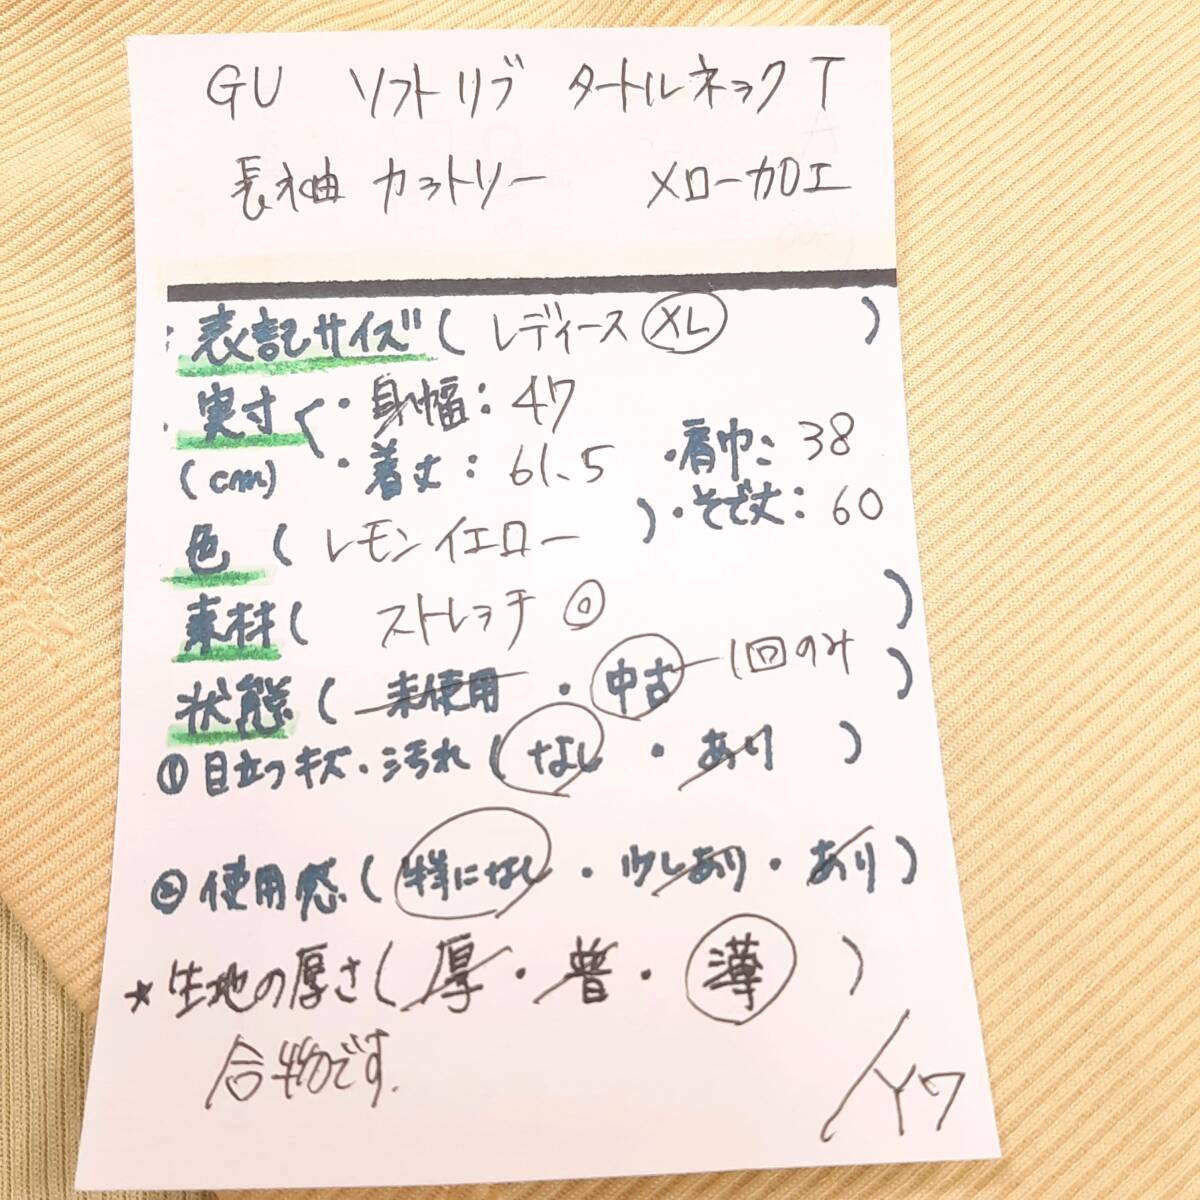 GU ソフトリブ タートルネックT
長袖 カットソー メロー加工
表記サイズ ( レディース XL )
実寸 (cm)
・身幅: 47
・着丈: 61.5
・肩巾: 38
・そで丈: 60
色 ( レモンイエロー )
素材 ( ストレッチ ◎ )
状態 ( 未使用 ・ 中古 1回のみ )
① 目立つキズ・汚れ ( なし ・ あり )
② 使用感 ( 特になし ・ 少しあり ・ あり )
★ 生地の厚さ ( 厚 ・ 普 ・ 薄 )
合物です.